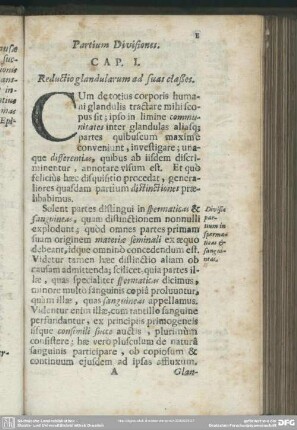 Partium Divisiones.
CAP. I.
Reductio glandularum ad suas classes.
CUm de totius corporis huma-
ni glandulis tractare mihi sco-
pus sit; ipso in limine commu-
nitates inter glandulas aliasq;
partes quibuscum maximè
conveniunt, investigare; una-
que differentias, quibus ab iisdem discri-
minentur, annotare visum est. Et quò
felicius hæc disquisitio procedat, genera-
liores quasdam partium distinctiones præ-
libabimus.
Solent partes distingui in spermaticas &
sanguineas, quam distinctionem nonnulli
explodunt; quòd omnes partes primam
suam originem materiæ seminali ex æquo
debeant, idque omninò concedendum est.
Videtur tamen hæc distinctio aliam ob
causam admittenda; scilicet quia partes il-
læ, quas specialiter spermaticas dicimus,
minore multò sanguinis copiâ perluuntur,
quàm illæ, quas sanguineas appellamus.
Videntur enim illæ, cum tantillo sanguine
perfundantur, ex principiis primogeneis
iisque consimili succo auctis, plurimùm
consistere; hæ verò plusculum de naturâ
sanguinis participare, ob copiosum &
continuum ejusdem ad ipsas affluxum.
A
Glan-
Divisio
par-
tium in
sperma-
ticas &
sangui-
neas.